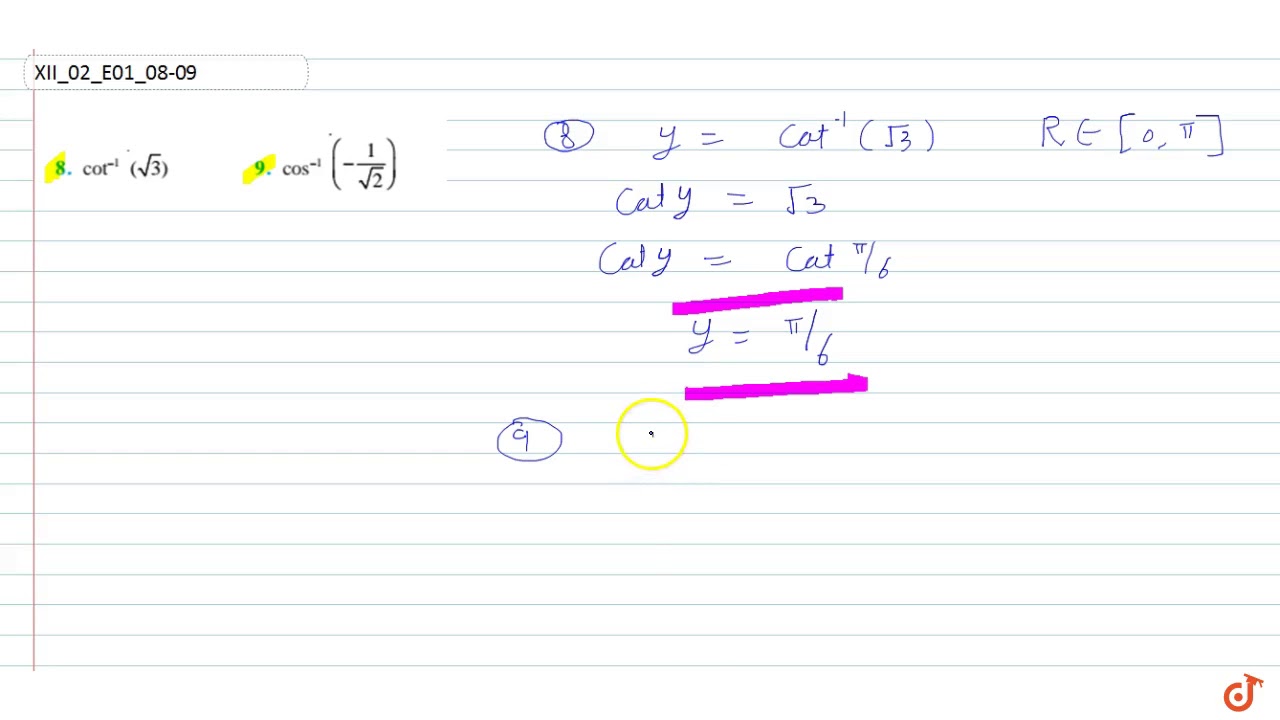 XII_02_E01_08-09
8. cot⁻¹ (√3) 9. cos⁻¹ (−1/√2)
8 y = Cot⁻¹ (√3) R ∈ [0, π]
Cot y = √3
Cot y = Cot π/6
y = π/6
9